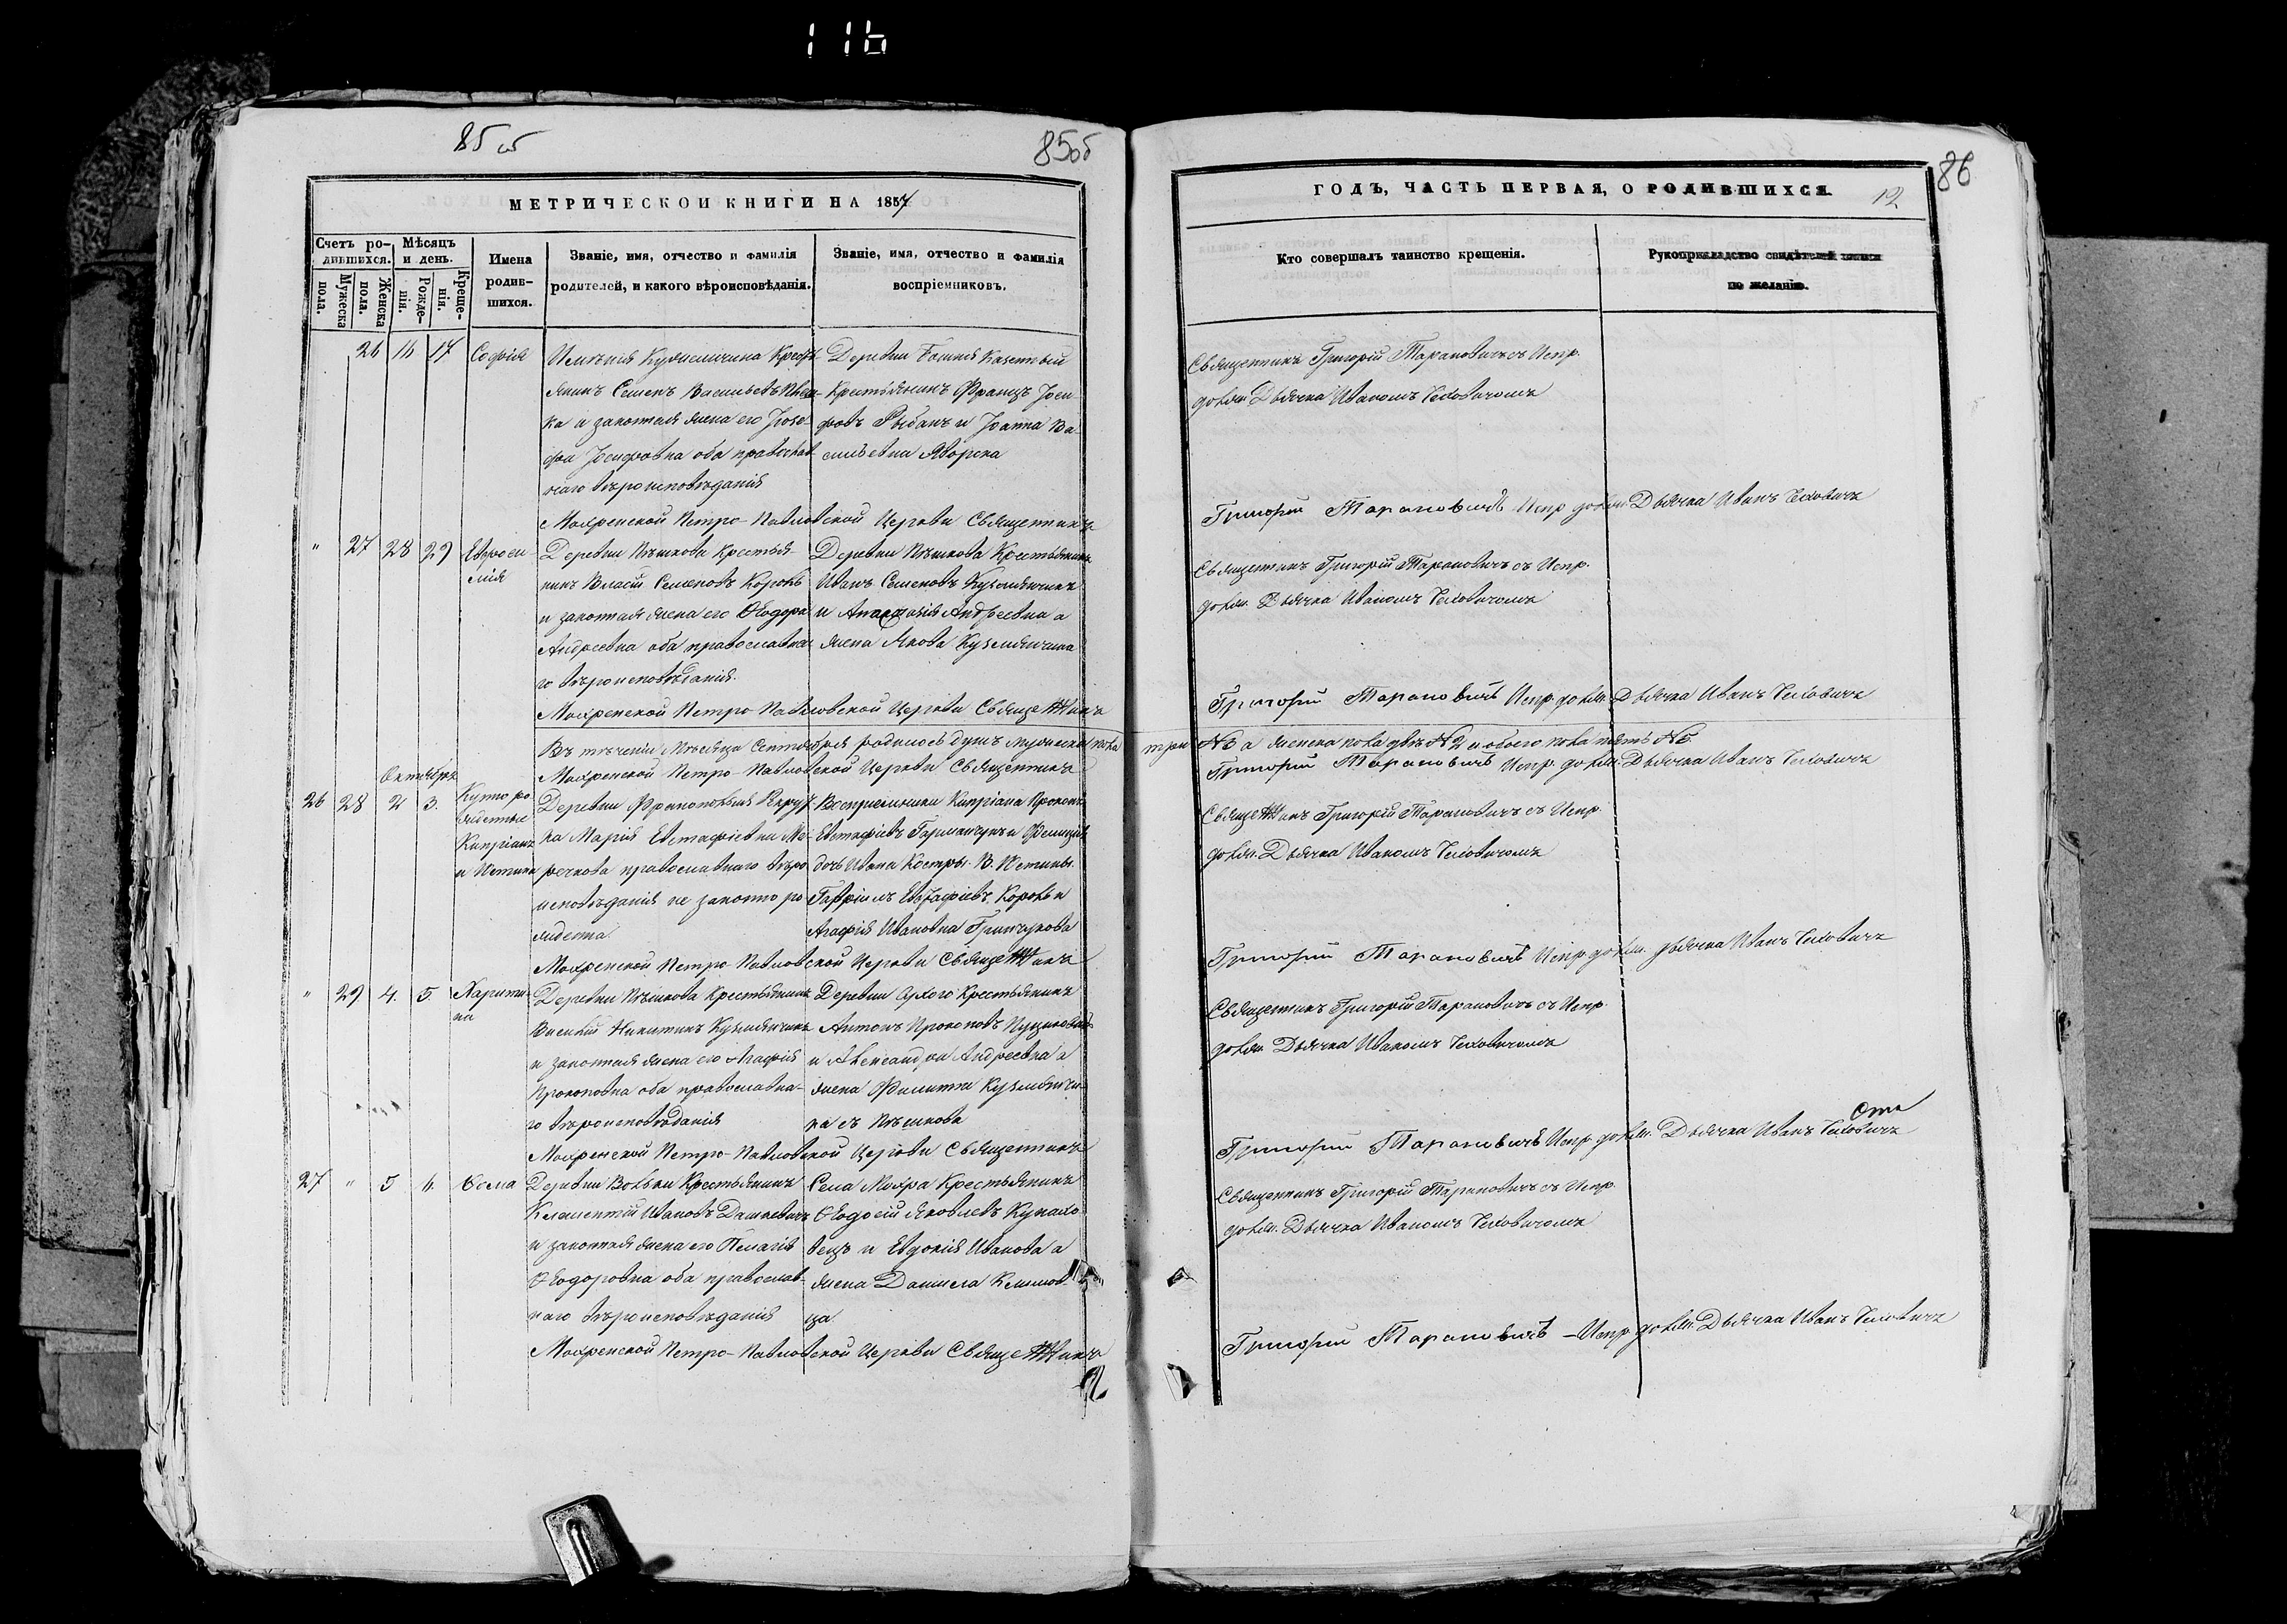 116
85 об
85об
МЕТРИЧЕСКОЙ КНИГИ НА 1857
Счетъ ро-
дившихся.
Мѣсяцъ
и день.
Мужеска
пола.
Женска
пола.
Рожде-
нія.
Креще-
нія.
Имена
родив-
шихся.
Званіе, имя, отчество и фамилія
родителей, и какого вѣроисповѣданія.
Званіе, имя, отчество и фамилія
воспріемниковъ.
26 16 17 Софія
Имѣнія Крестья-
янинъ Семенъ Васильевъ
ка и законная жена его Јозе-
фа Јосифовна оба православ-
наго вѣроисповѣданія
Деревни Казенный
Крестьянинъ Францъ Јоси-
фовъ Рыбакъ и Јоанна Ва-
сильевна Яворска
Мохренской Петро-Павловской Церкви Священникъ
" 27 28 29 Евфроси-
нія
Деревни Пѣшкова Крестья-
нинъ Власій Семеновъ Король
и законная жена его Ѳеодора
Андреевна оба православна-
го вѣроисповѣданія.
Деревни Пѣшкова Крестьянинъ
Иванъ Семеновъ Кузмичикъ
и Анастасія Андреевна а
жена Якова Кузмичика
Мохренской Петро-Павловской Церкви Священникъ
Въ теченіи Мѣсяца Септября родилось душъ мужеска пола три
Мохренской Петро-Павловской Церкви Священникъ
Октября
26 28 2 3. Купно ро-
жденные
Кипріанъ
и Иустина
Деревни
ка Марія Евстафіевна
православнаго вѣро-
исповѣданія не законно ро-
ждена
Воспріемники Кипріана Прокопъ
Евстафіевъ и Фелиція
дочь Ивана Костры. В. Иустины
Гавріилъ Евстафіевъ Король и
Агафія Ивановна Гринчукова
Мохренской Петро-Павловской Церкви Священникъ
" 29 4. 5. Харити-
на
Деревни Пѣшкова Крестьянинъ
Василій Никитинъ Кузмичикъ
и законная жена его Агафія
Прокоповна оба православна-
го вѣроисповѣданія
Деревни Сухого Крестьянинъ
Антонъ Прокоповъ
и Александра Андреевна а
жена Филиппа Кузмичи-
ка съ Пѣшкова
Мохренской Петро-Павловской Церкви Священникъ
27 " 5 6. Ѳома
Деревни Вольки Крестьянинъ
Климентій Ивановъ Дашкевичъ
и законная жена его Пелагія
Ѳеодоровна оба православ-
наго вѣроисповѣданія
Села Мохра Крестьянинъ
Ѳеодосій Яковлевъ Кунахо-
вецъ и Евдокія Иванова а
жена Даніила Климов-
ца
Мохренской Петро-Павловской Церкви Священникъ
ГОДЪ, ЧАСТЬ ПЕРВАЯ, О РОДИВШИХСЯ.
12
86
Кто совершалъ таинство крещенія.
Рукоприкладство свидѣтелей записи
по желанію.
Священникъ Григорій Тарановичъ съ Испр.
долж. Дьячка Иваномъ Теховичомъ
Григорій Тарановичъ Испр долж. Дьячка Иванъ Теховичъ
Священникъ Григорій Тарановичъ съ Испр.
долж. Дьячка Иваномъ Теховичомъ
Григорій Тарановичъ Испр. долж. Дьячка Иванъ Теховичъ
№3 а женска пола двѣ №2 и обоего пола пять №5
Григорій Тарановичъ Испр. долж. Дьячка Иванъ Теховичъ
Священникъ Григорій Тарановичъ съ Испр.
долж. Дьячка Иваномъ Теховичомъ
Григорій Тарановичъ Испр долж. Дьячка Иванъ Теховичъ
Священникъ Григорій Тарановичъ съ Испр.
долж. Дьячка Иваномъ Теховичомъ
Григорій Тарановичъ Испр. долж. Дьячка Иванъ Теховичъ
Священникъ Григорій Тарановичъ съ Испр.
долж. Дьячка Иваномъ Теховичомъ
Григорій Тарановичъ - Испр долж. Дьячка Иванъ Теховичъ